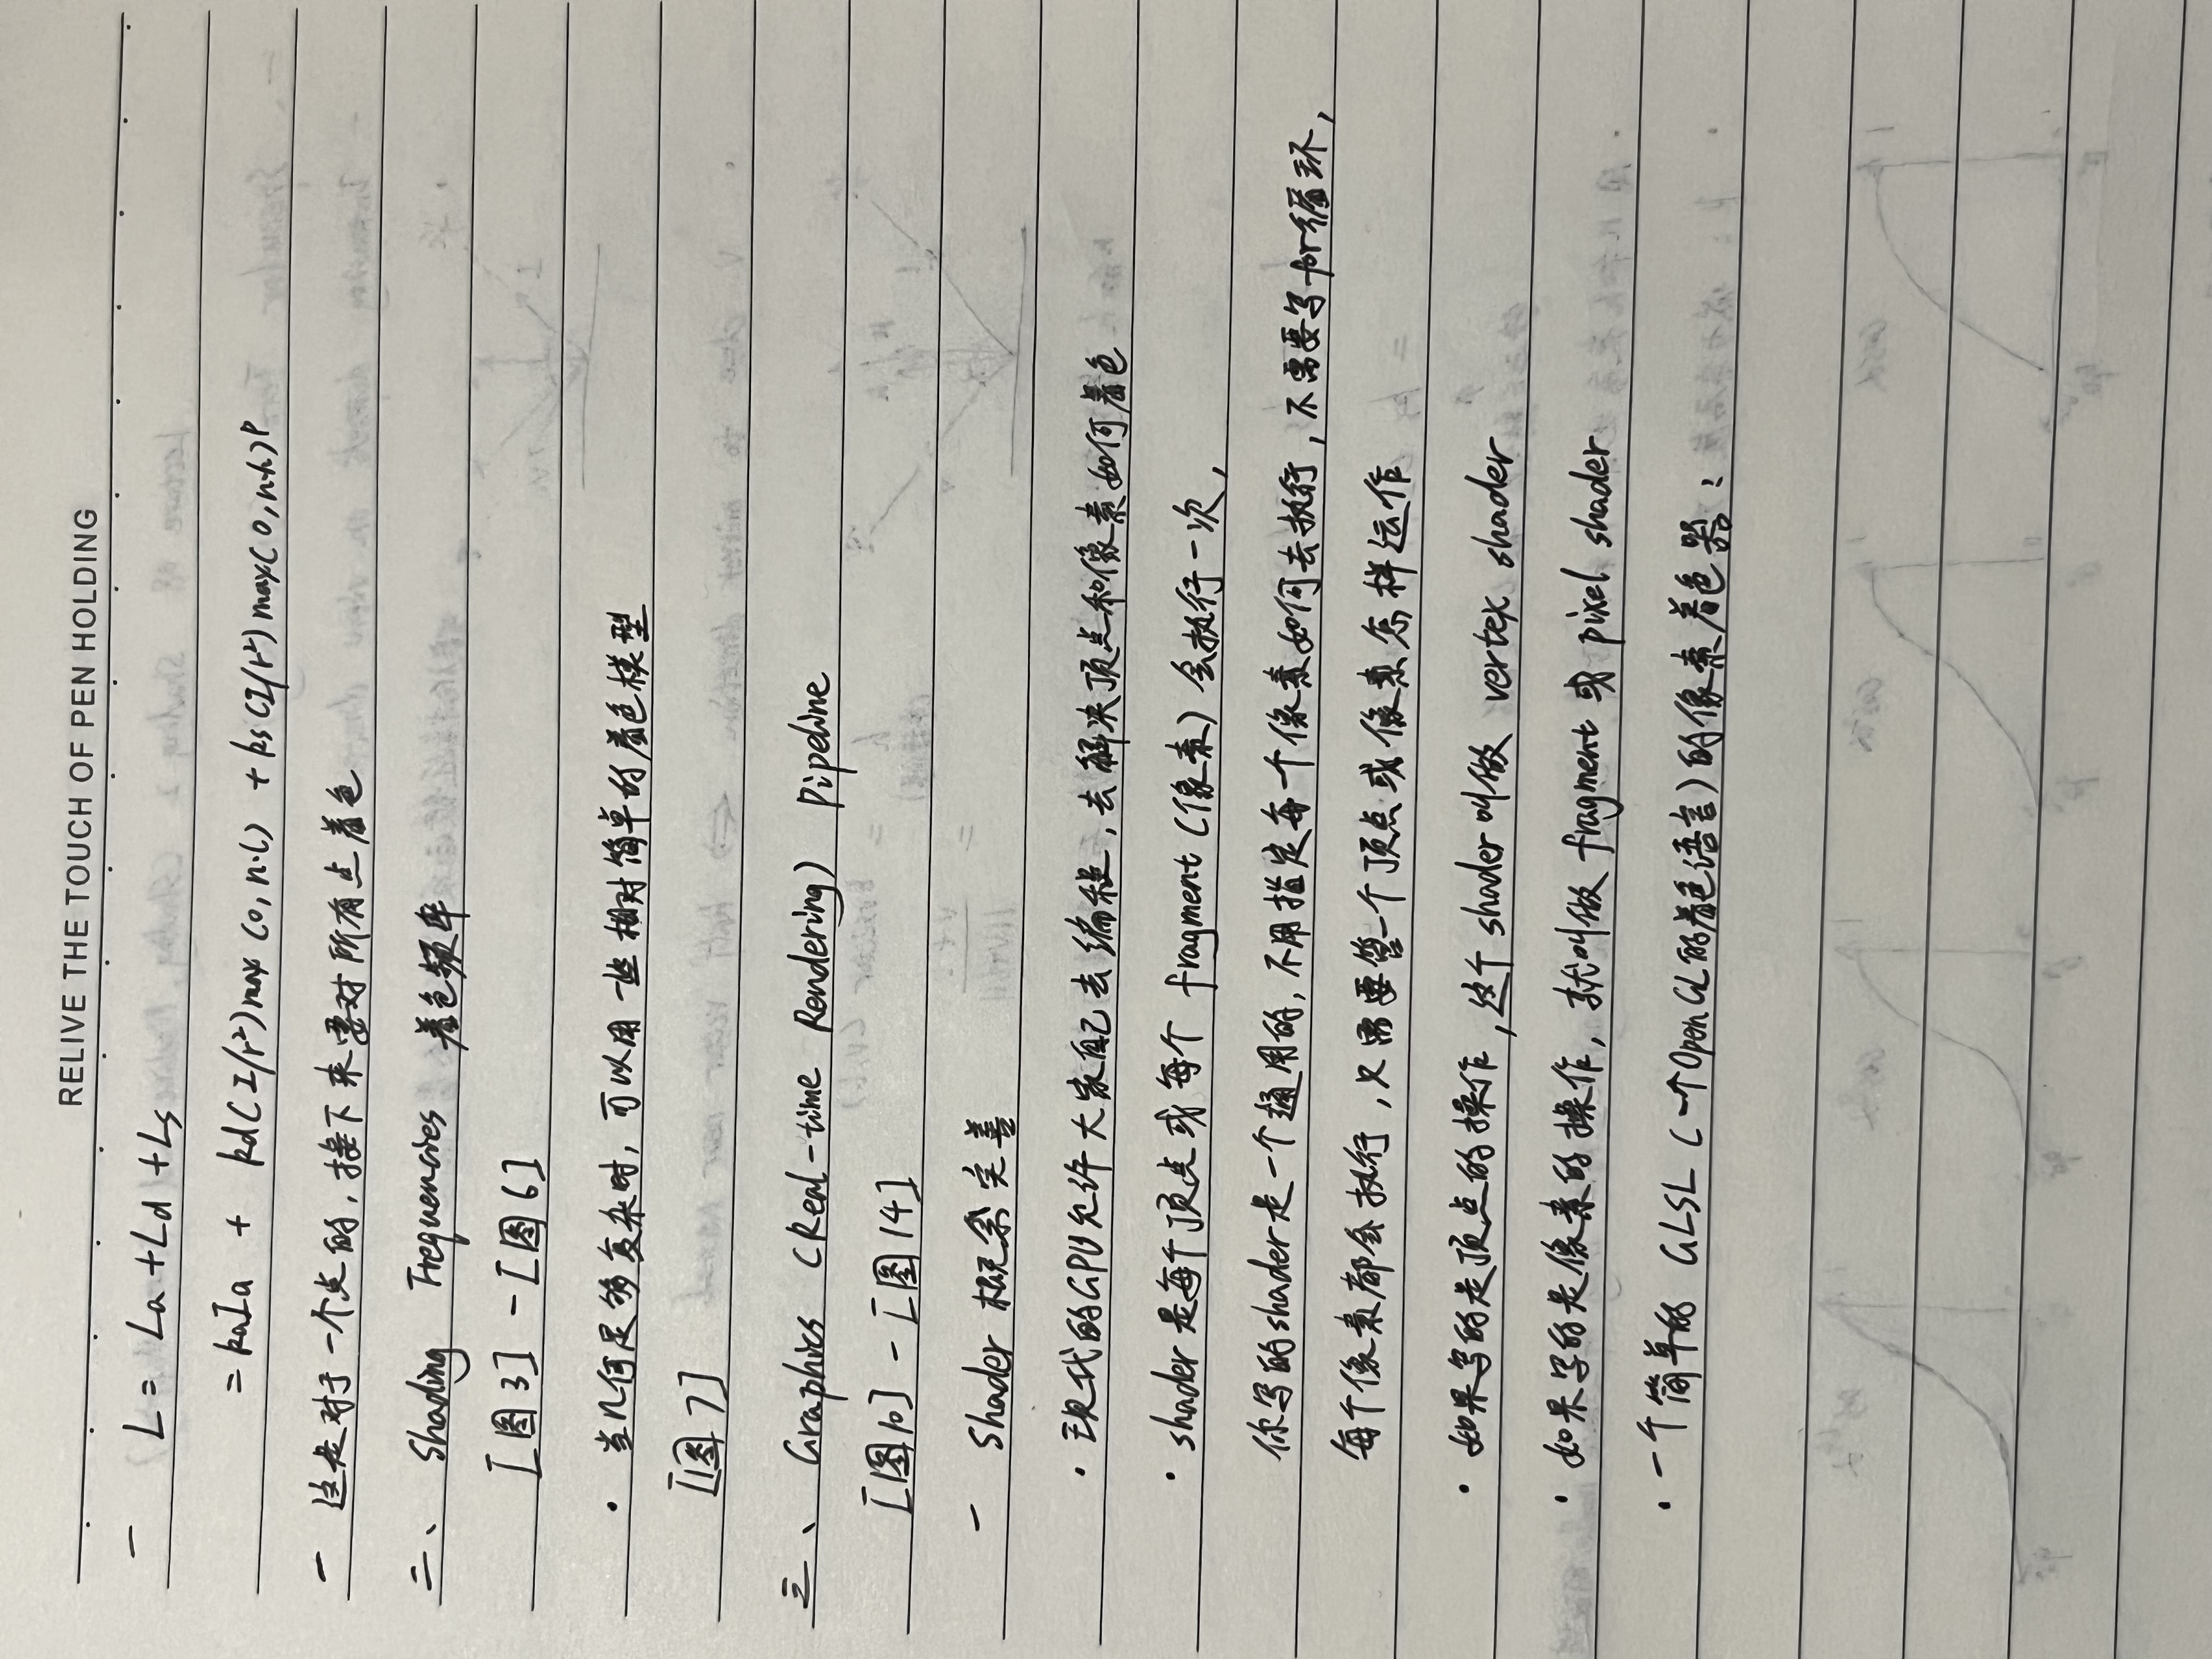 RELIVE THE TOUCH OF PEN HOLDING
— L = La + Ld + Ls
= kaIa + kd(I/r²)max(0, n·l) + ks(I/r²)max(0, n·h)ᵖ
— 这是对于一个点的, 接下来要对所有点着色
二、Shading Frequencies 着色频率
[图3] - [图6]
· 当几何足够复杂时, 可以用一些相对简单的着色模型
[图7]
三、Graphics (Real-time Rendering) Pipeline
[图10] - [图14]
— Shader 概念完善
· 现代的GPU允许大家自己去编程, 去解决顶点和像素如何着色
· shader是每个顶点或每个 fragment (像素) 会执行一次,
你写的shader是一个通用的, 不用指定每一个像素如何去执行, 不需要写for循环,
每个像素都会执行, 只需要管一个顶点或像素怎样运作
· 如果写的是顶点的操作, 这个shader叫做 vertex shader
· 如果写的是像素的操作, 就叫做 fragment 或 pixel shader
· 一个简单的 GLSL (一个OpenGL的着色语言) 的像素着色器: